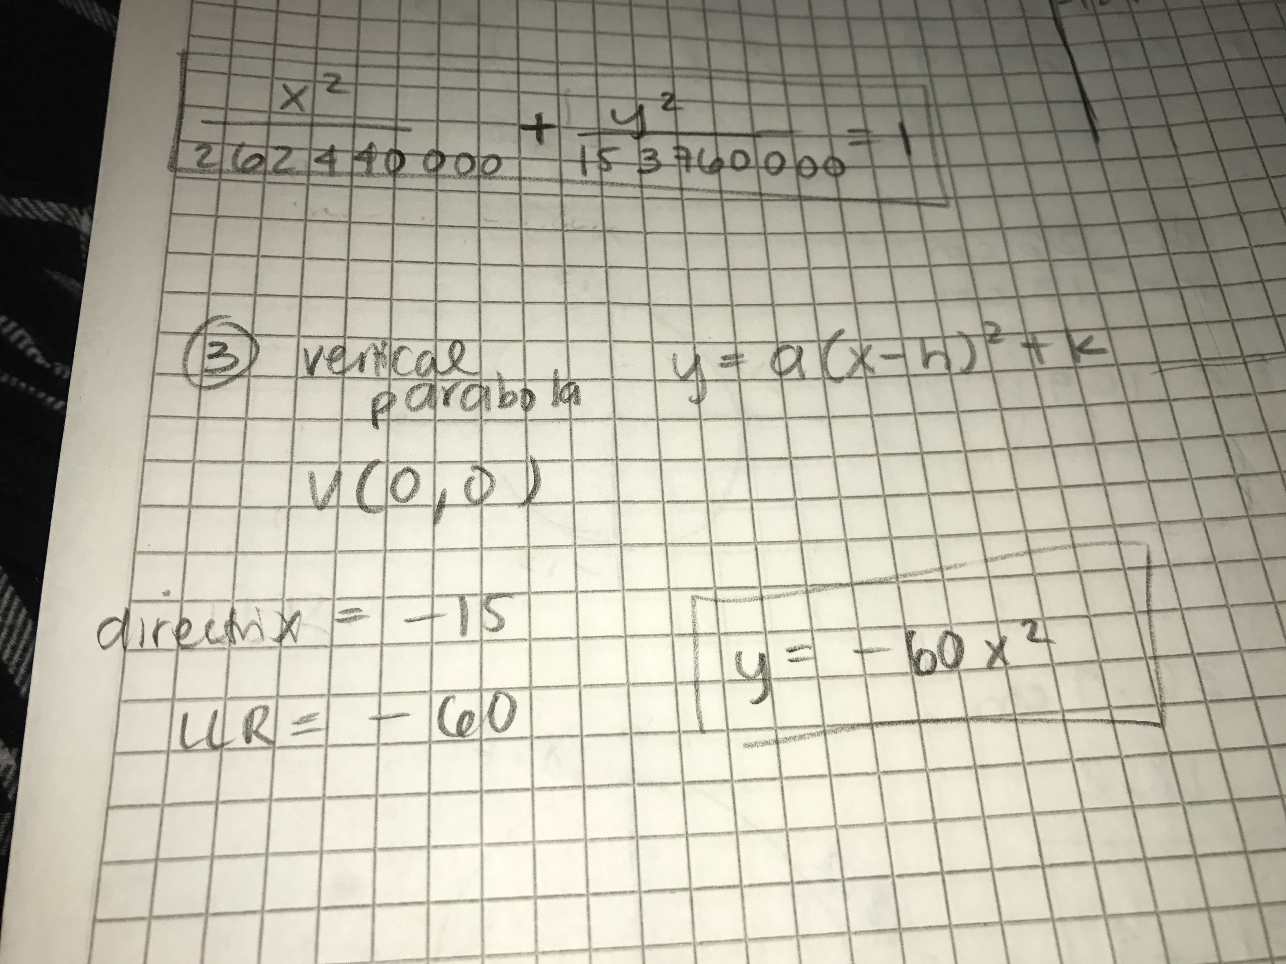 x²/262440000 + y²/153760000 = 1
③ vertical parabola y = a(x-h)² + k
V(0,0)
directrix = -15
LLR = -60
y = -60x²